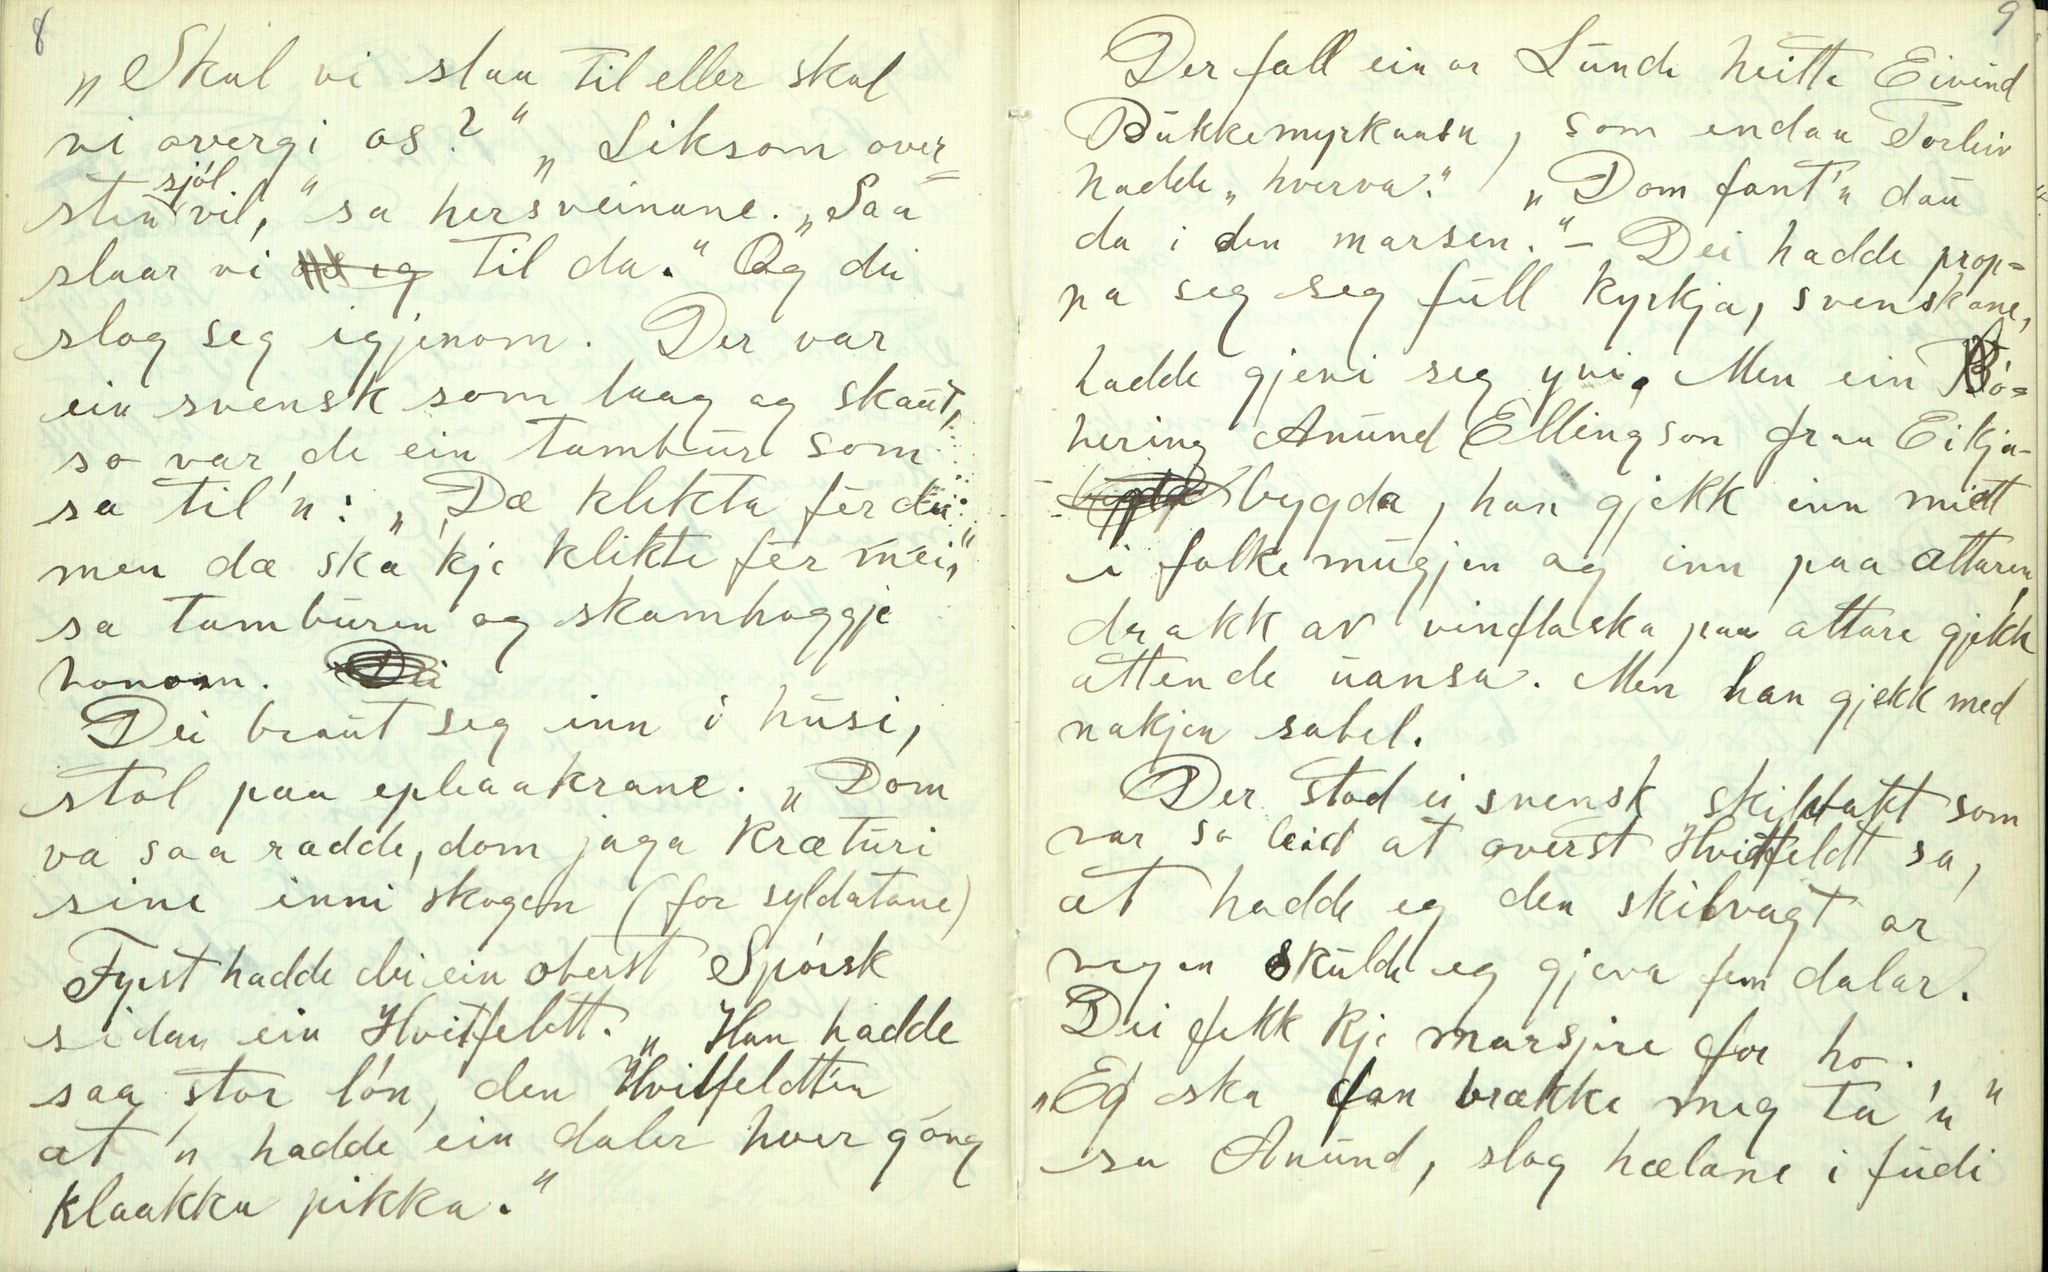 8
„Skal vi slaa til eller skal
vi overgi os?" „Liksom over=
sten sjøl vil," sa hersveinane. „Saa
slaar vi til da." Og dei
slog seg igjenom. Der var
ein svensk som laag og skaut,
so var de ein tambur som
sa til 'n: „Dæ klikta fer dei
men dæ ska 'kje klikte fer mei,"
sa tamburen og skamhoggje
honom.
Dei braut seg inn i husi,
stol paa eplaakrane. „Dom
va saa rædde, dom jaga kræturi
sine inni skogen (for syldatane)
Fyrst hadde dei ein oberst Spørsk
sidan ein Hvitfeldt. „Han hadde
saa stor løn, den Hvitfeldt'en
at 'n hadde ein daler hver gong
klaakka pikka."
9
Der fall ein or Lunde heitte Eivind
Bukkemyrkaasa, som endaa Torleiv
hadde „hverva." „Dom fant'n dau
da i den marsen." – Dei hadde prop=
pa seg seg full kyrkja, svenskane,
hadde gjevi seg yvi. Men ein Bø=
hering Anund Ellingson fraa Eikja-
bygda, han gjekk inn midt
i folkemugjen og inn paa altaren,
drakk av vinflaska paa altare gjekk
attende uansa. Men han gjekk med
nakjen sabel.
Der stod ei svensk skildvakt som
var so leid at overst Hvidtfeldt sa,
at hadde eg den skilvagt or
vegen skulde eg gjeva fem dalar.
Dei fekk kje marsjere for ho.
„Eg ska fan brække meg ta 'n"
sa Anund, slog hælane i fudi